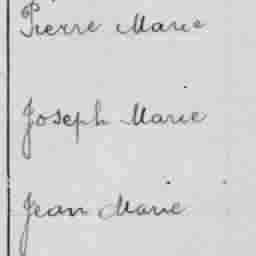 Pierre Marie
Joseph Marie
Jean Marie